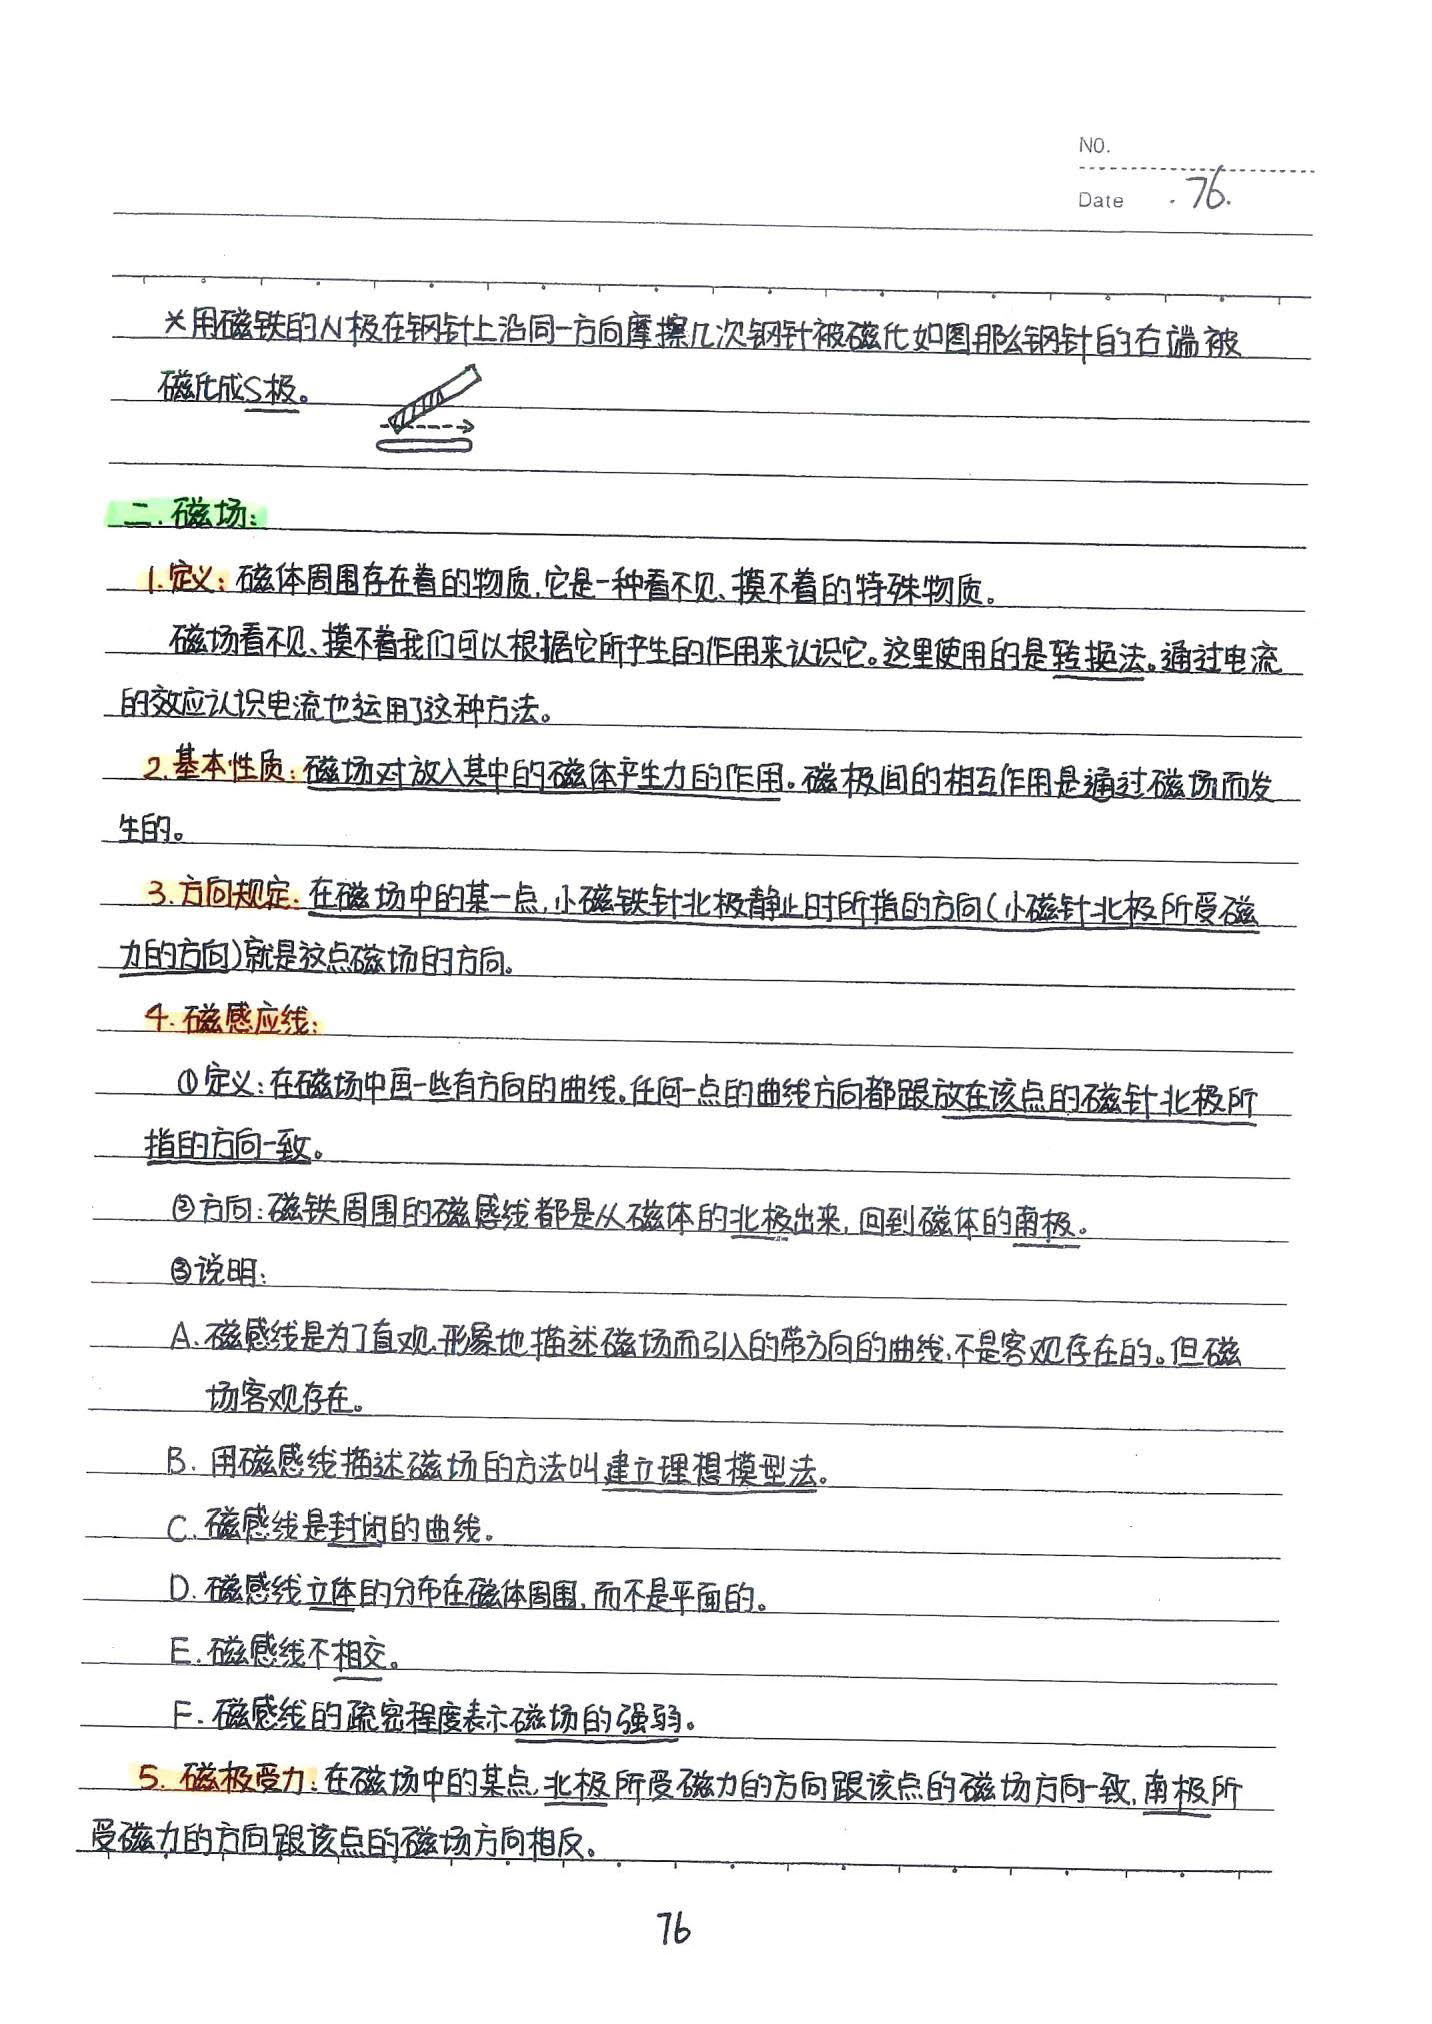 NO.
Date .76.
*用磁铁的N极在钢针上沿同一方向摩擦几次钢针被磁化如图那么钢针的右端被
磁化成S极。
二.磁场:
1.定义:磁体周围存在着的物质,它是一种看不见、摸不着的特殊物质。
磁场看不见、摸不着我们可以根据它所产生的作用来认识它。这里使用的是转换法。通过电流
的效应认识电流也运用了这种方法。
2.基本性质:磁场对放入其中的磁体产生力的作用。磁极间的相互作用是通过磁场而发
生的。
3.方向规定:在磁场中的某一点,小磁铁针北极静止时所指的方向(小磁针北极所受磁
力的方向)就是这点磁场的方向。
4.磁感应线:
①定义:在磁场中画一些有方向的曲线。任何一点的曲线方向都跟放在该点的磁针北极所
指的方向一致。
②方向:磁铁周围的磁感线都是从磁体的北极出来,回到磁体的南极。
③说明:
A.磁感线是为了直观、形象地描述磁场而引入的带方向的曲线,不是客观存在的。但磁
场客观存在。
B.用磁感线描述磁场的方法叫建立理想模型法。
C.磁感线是封闭的曲线。
D.磁感线立体的分布在磁体周围,而不是平面的。
E.磁感线不相交。
F.磁感线的疏密程度表示磁场的强弱。
5.磁极受力:在磁场中的某点,北极所受磁力的方向跟该点的磁场方向一致,南极所
受磁力的方向跟该点的磁场方向相反。
76